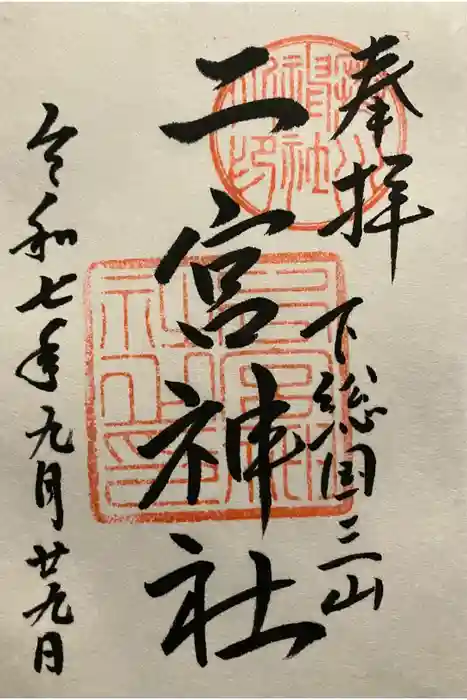 奉拝
下総国三山
二宮神社
令和七年九月廿九日